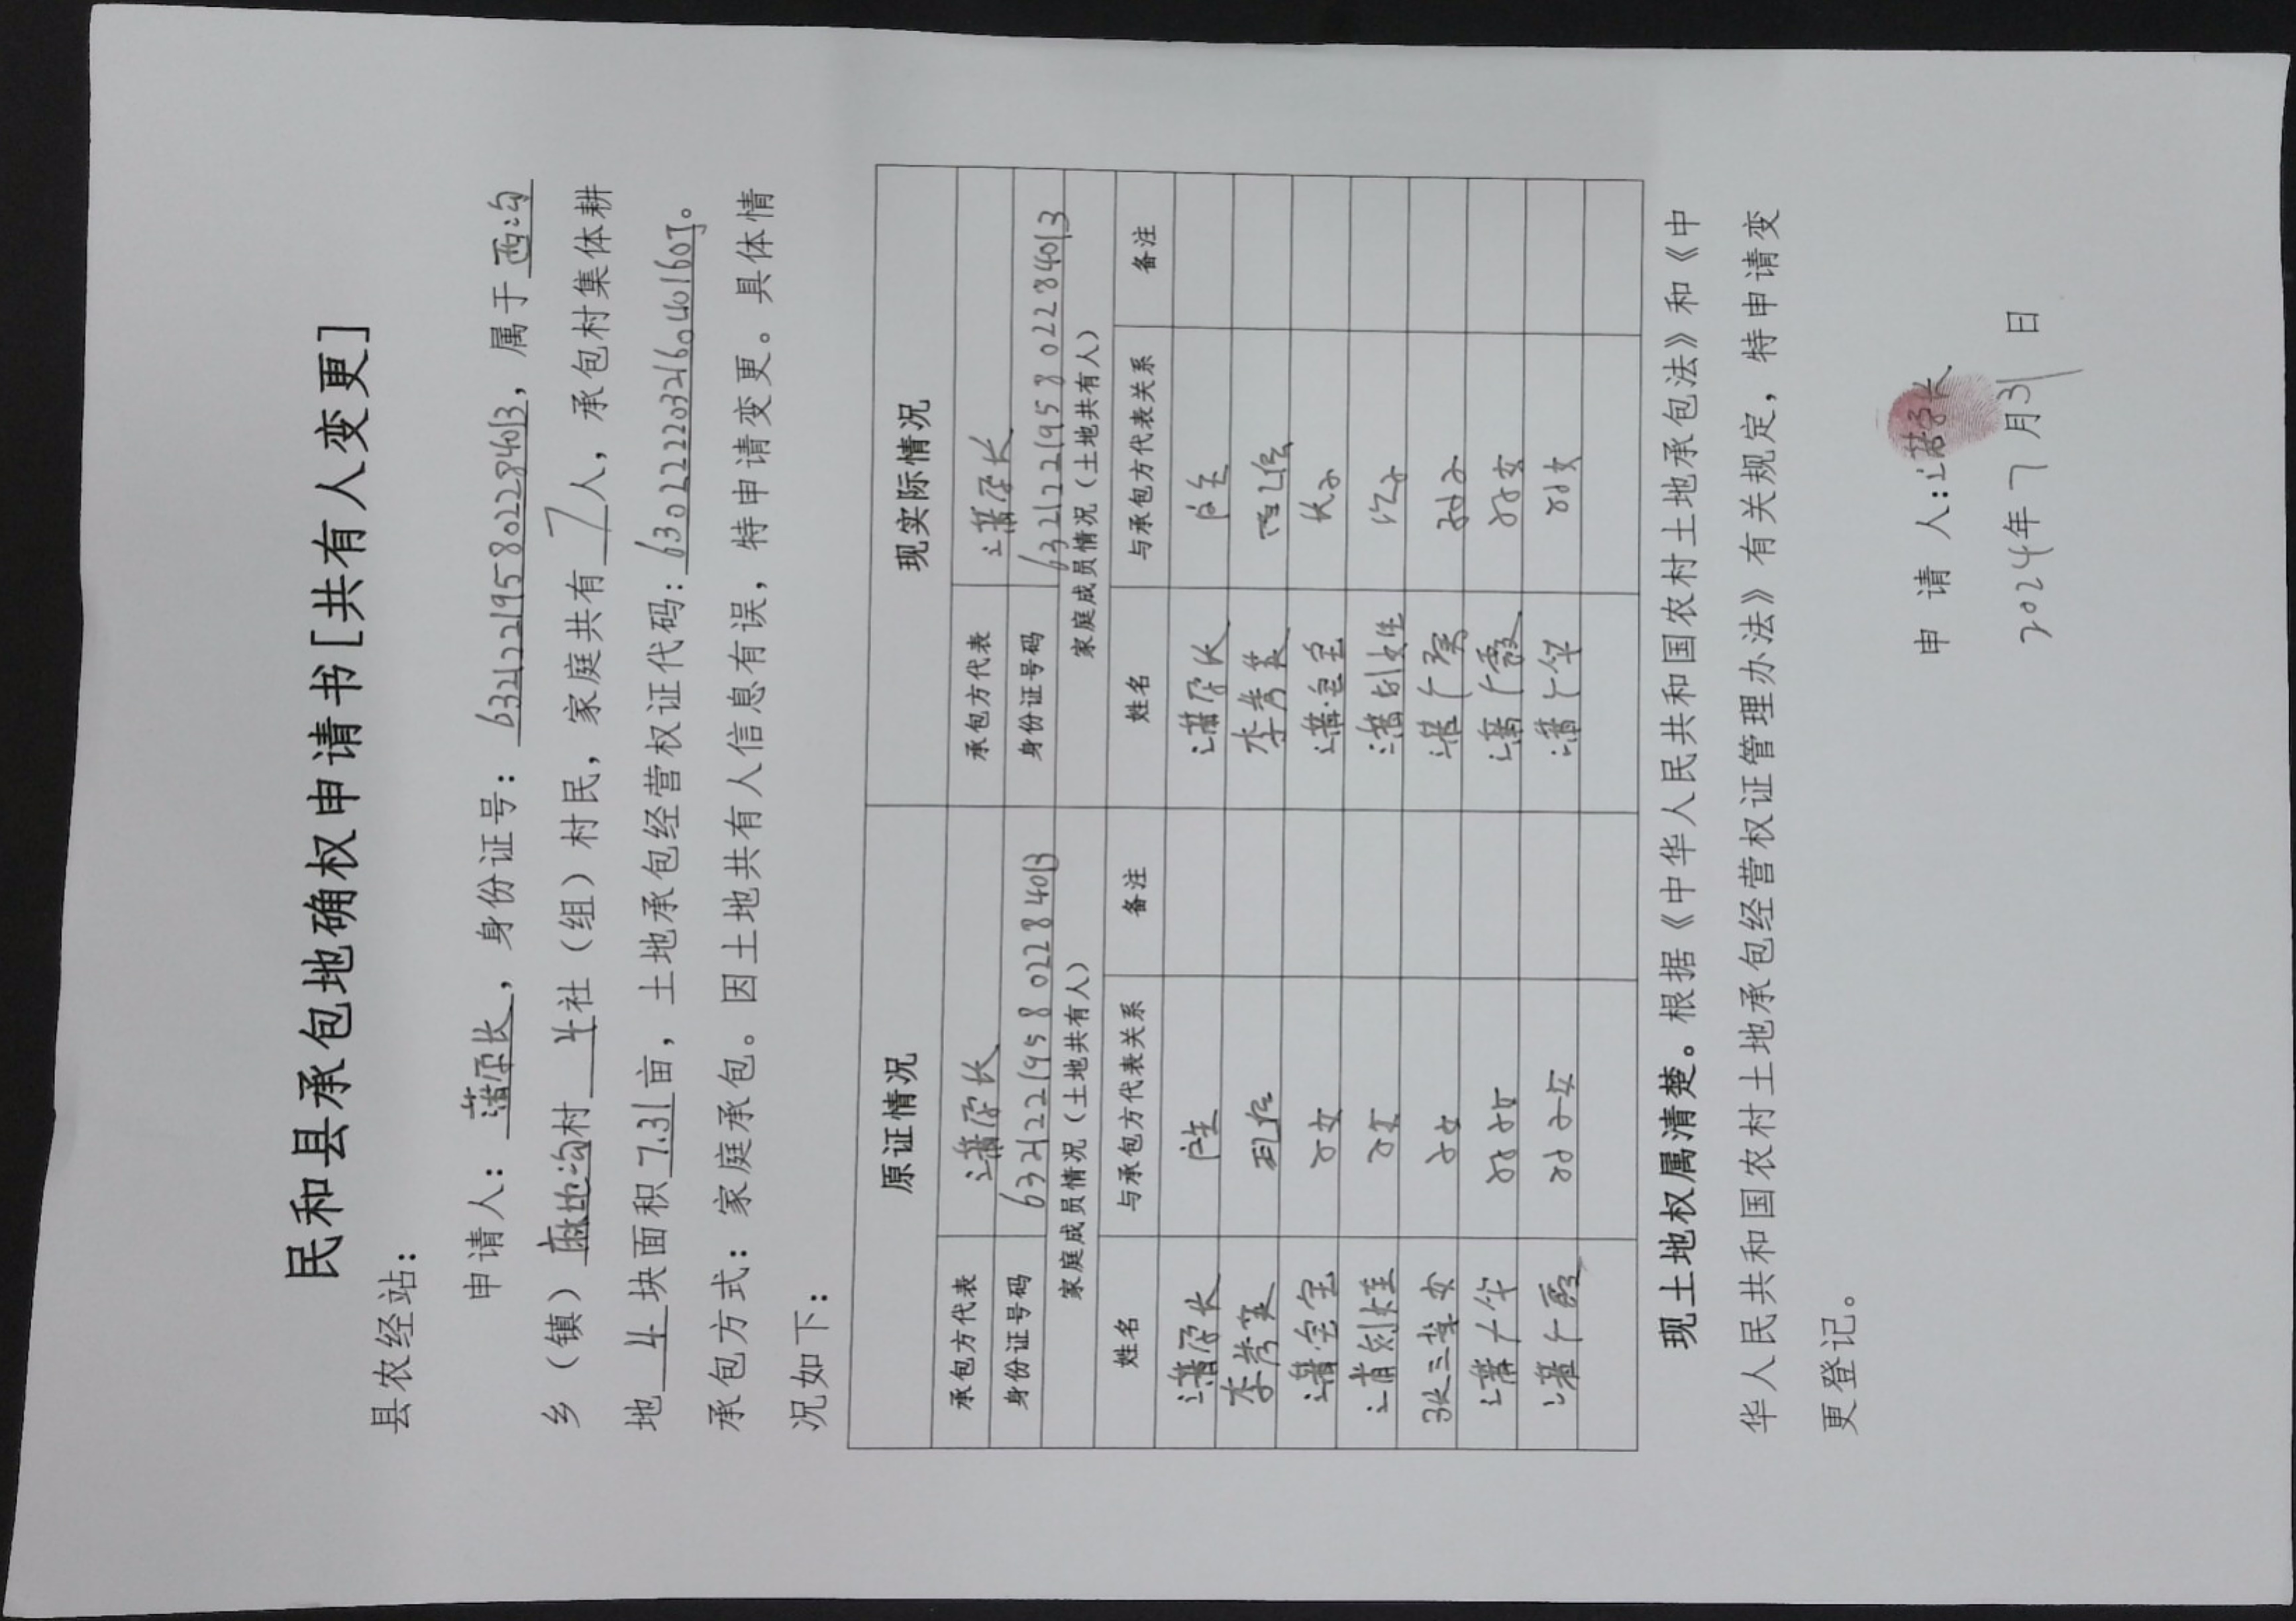 民和县承包地确权申请书[共有人变更]
县农经站：
申请人：蒲长，身份证号：632122195802284013，属于西沟
乡（镇）麻地沟村 4社（组）村民，家庭共有7人，承包村集体耕
地 4 块面积7.31亩，土地承包经营权证代码：
承包方式：家庭承包。因土地共有人信息有误，特申请变更。具体情
况如下：
原证情况 现实际情况
承包方代表 蒲长 承包方代表 蒲长
身份证号码 632122195802284013 身份证号码 632122195802284013
家庭成员情况（土地共有人） 家庭成员情况（土地共有人）
姓名 与承包方代表关系 备注 姓名 与承包方代表关系 备注
蒲长 户主 蒲长 户主
李秀英 配偶 李秀英 配偶
蒲宝宝 子女 蒲宝宝 长子
子女 次子
张三 女 子女 蒲 孙子
蒲 华 孙子女 蒲 霞 孙女
蒲 霞 孙子女 蒲 华 孙女
现土地权属清楚。根据《中华人民共和国农村土地承包法》和《中
华人民共和国农村土地承包经营权证管理办法》有关规定，特申请变
更登记。
申 请 人：蒲长
2024年 7 月31 日